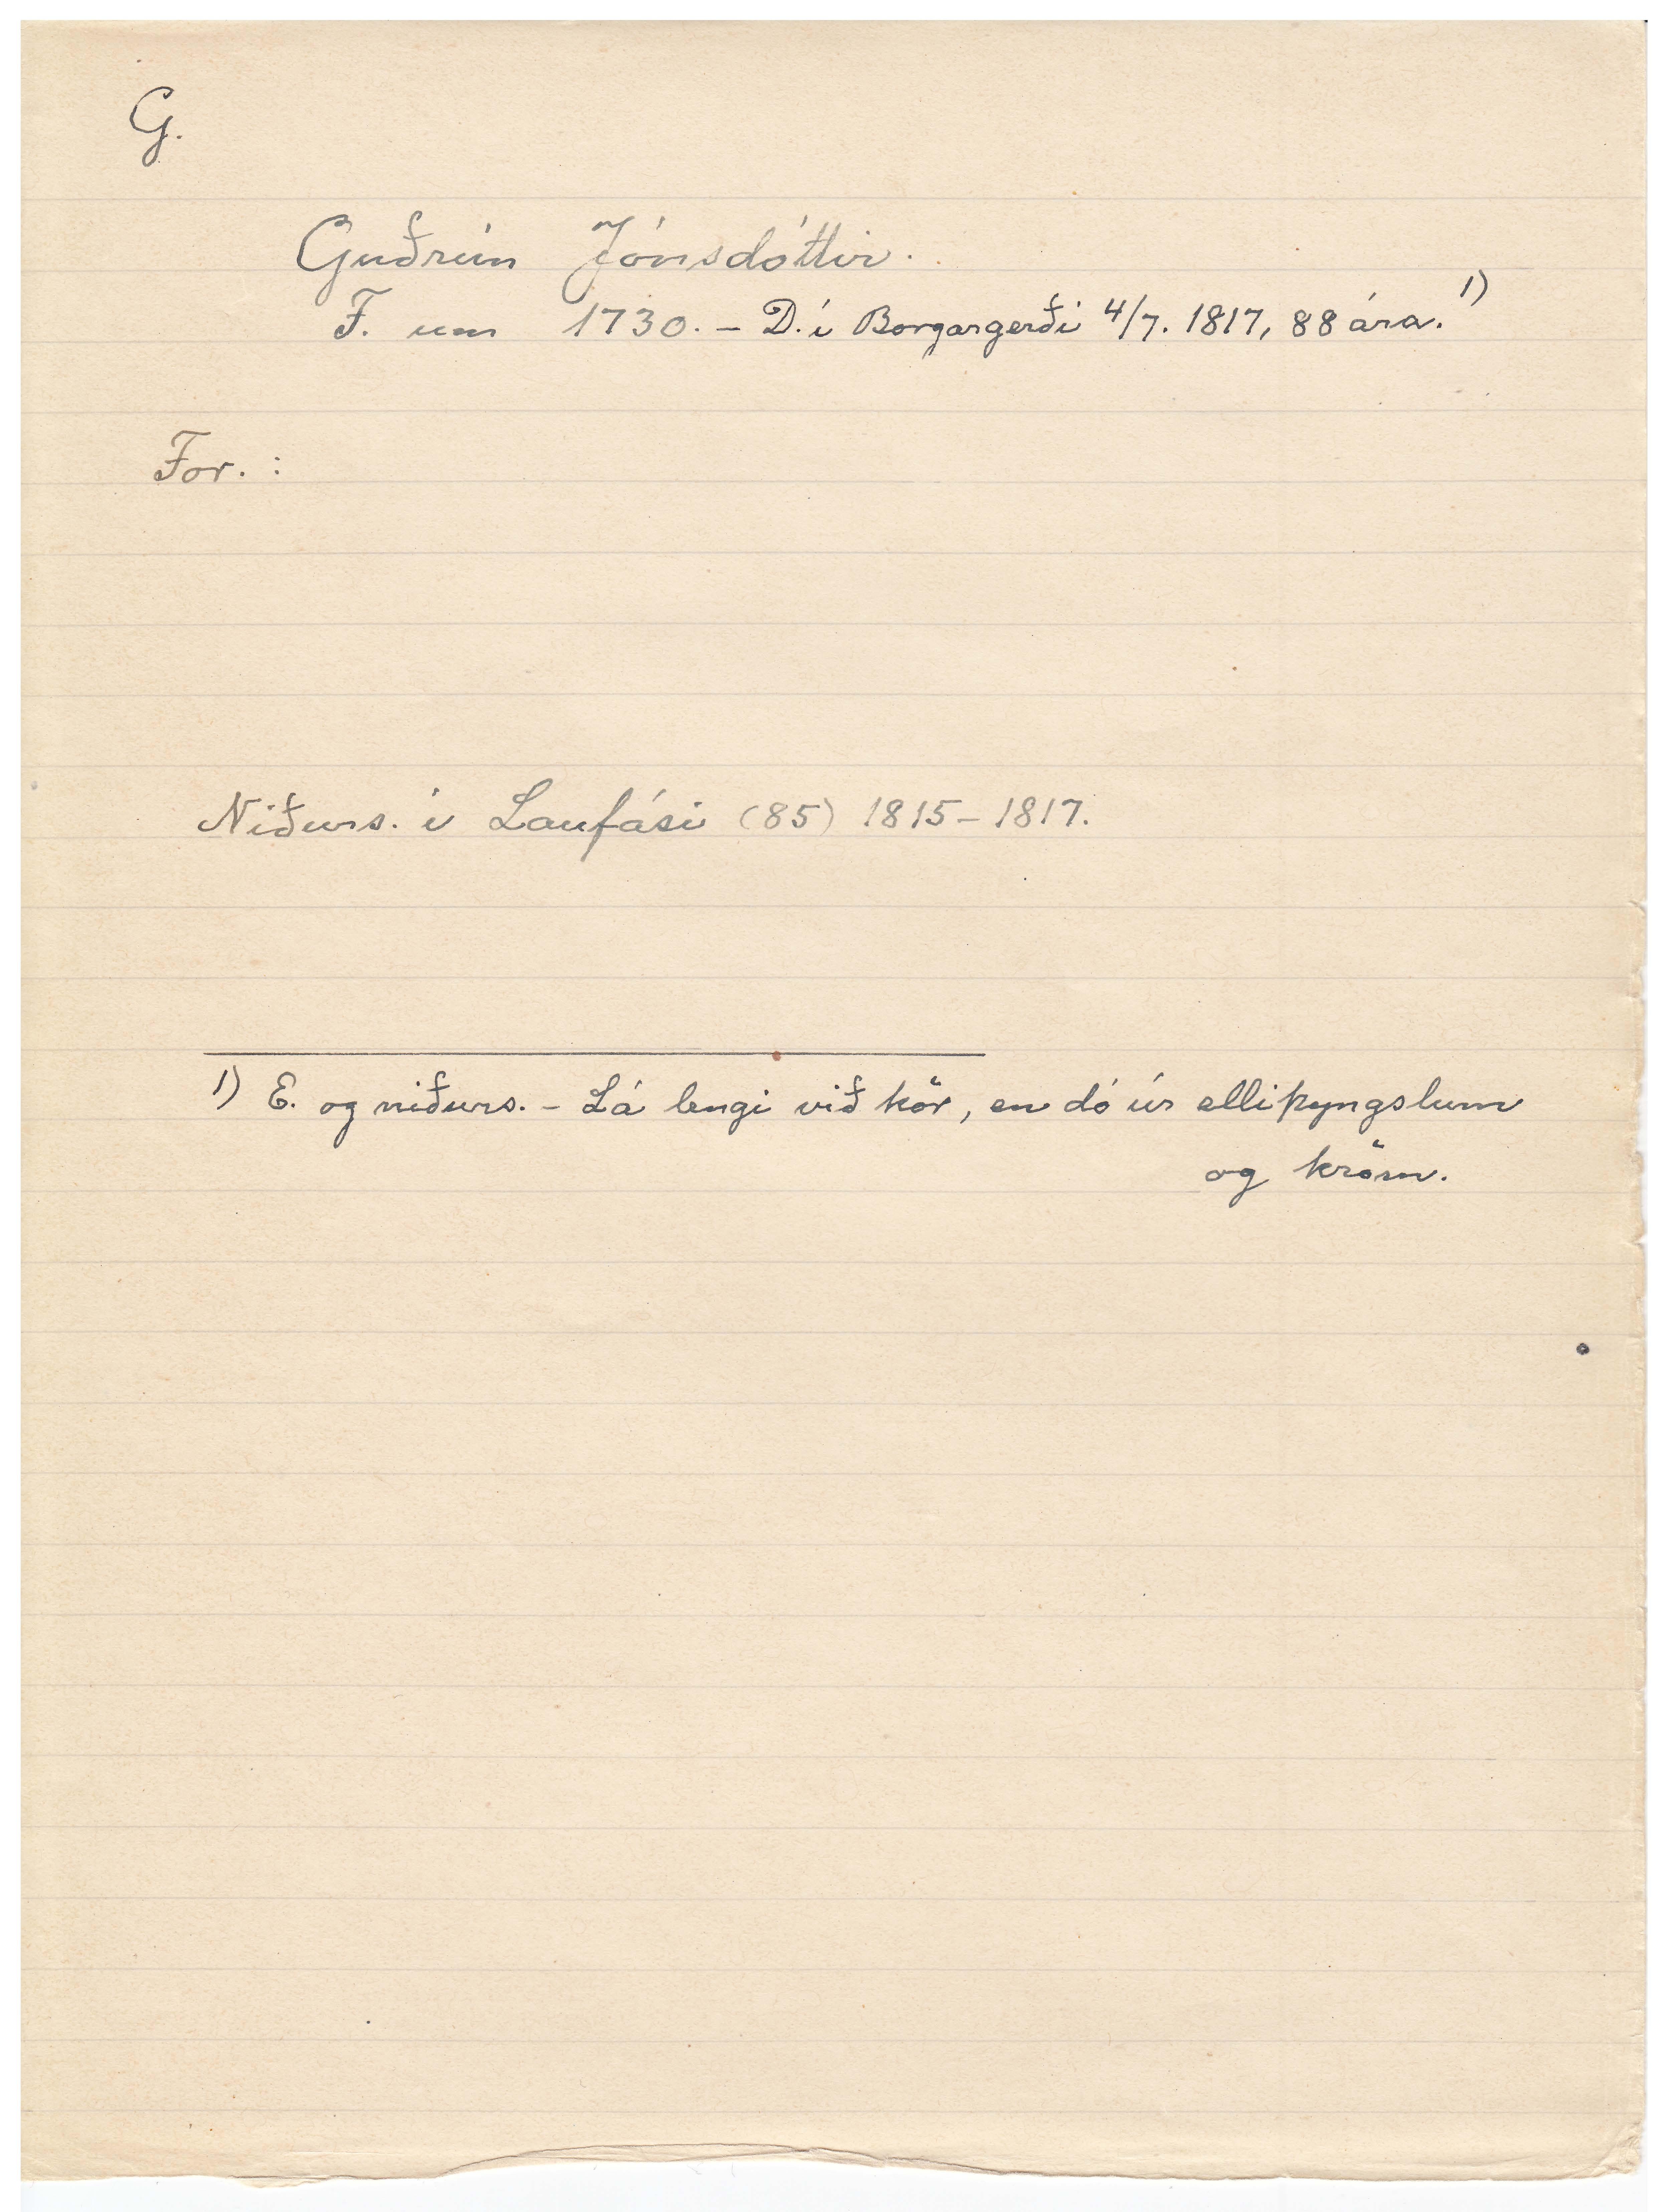 G.
Guðrún Jónsdóttir.
F. um 1730. – D. í Borgargerði 4/7. 1817, 88 ára. 1)
For. :
Niðurs. í Laufási (85) 1815–1817.
1) E. og niðurs. – Lá lengi við kör, en dó úr elliþyngslum
og kröm.